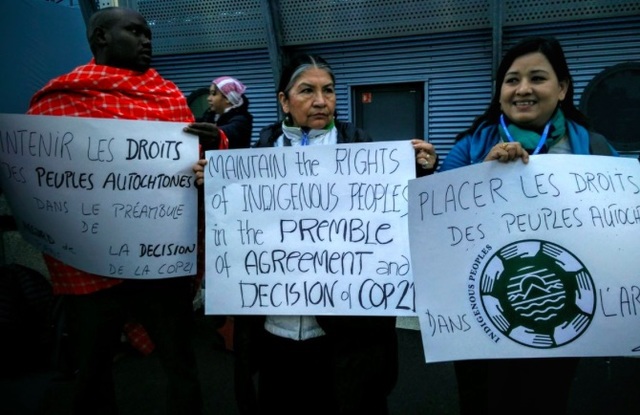 INTENIR LES DROITS
DES PEUPLES AUTOCHTONES
DANS LE PRÉAMBULE
DE
de LA DECISION
DE LA COP21
MAINTAIN the RIGHTS
of INDIGENOUS PEOPLES
in the PREMBLE
of AGREEMENT and
DECISION of COP21
PLACER LES DROITS
DES PEUPLES AUTOCH
INDIGENOUS PEOPLES
DANS L'AR